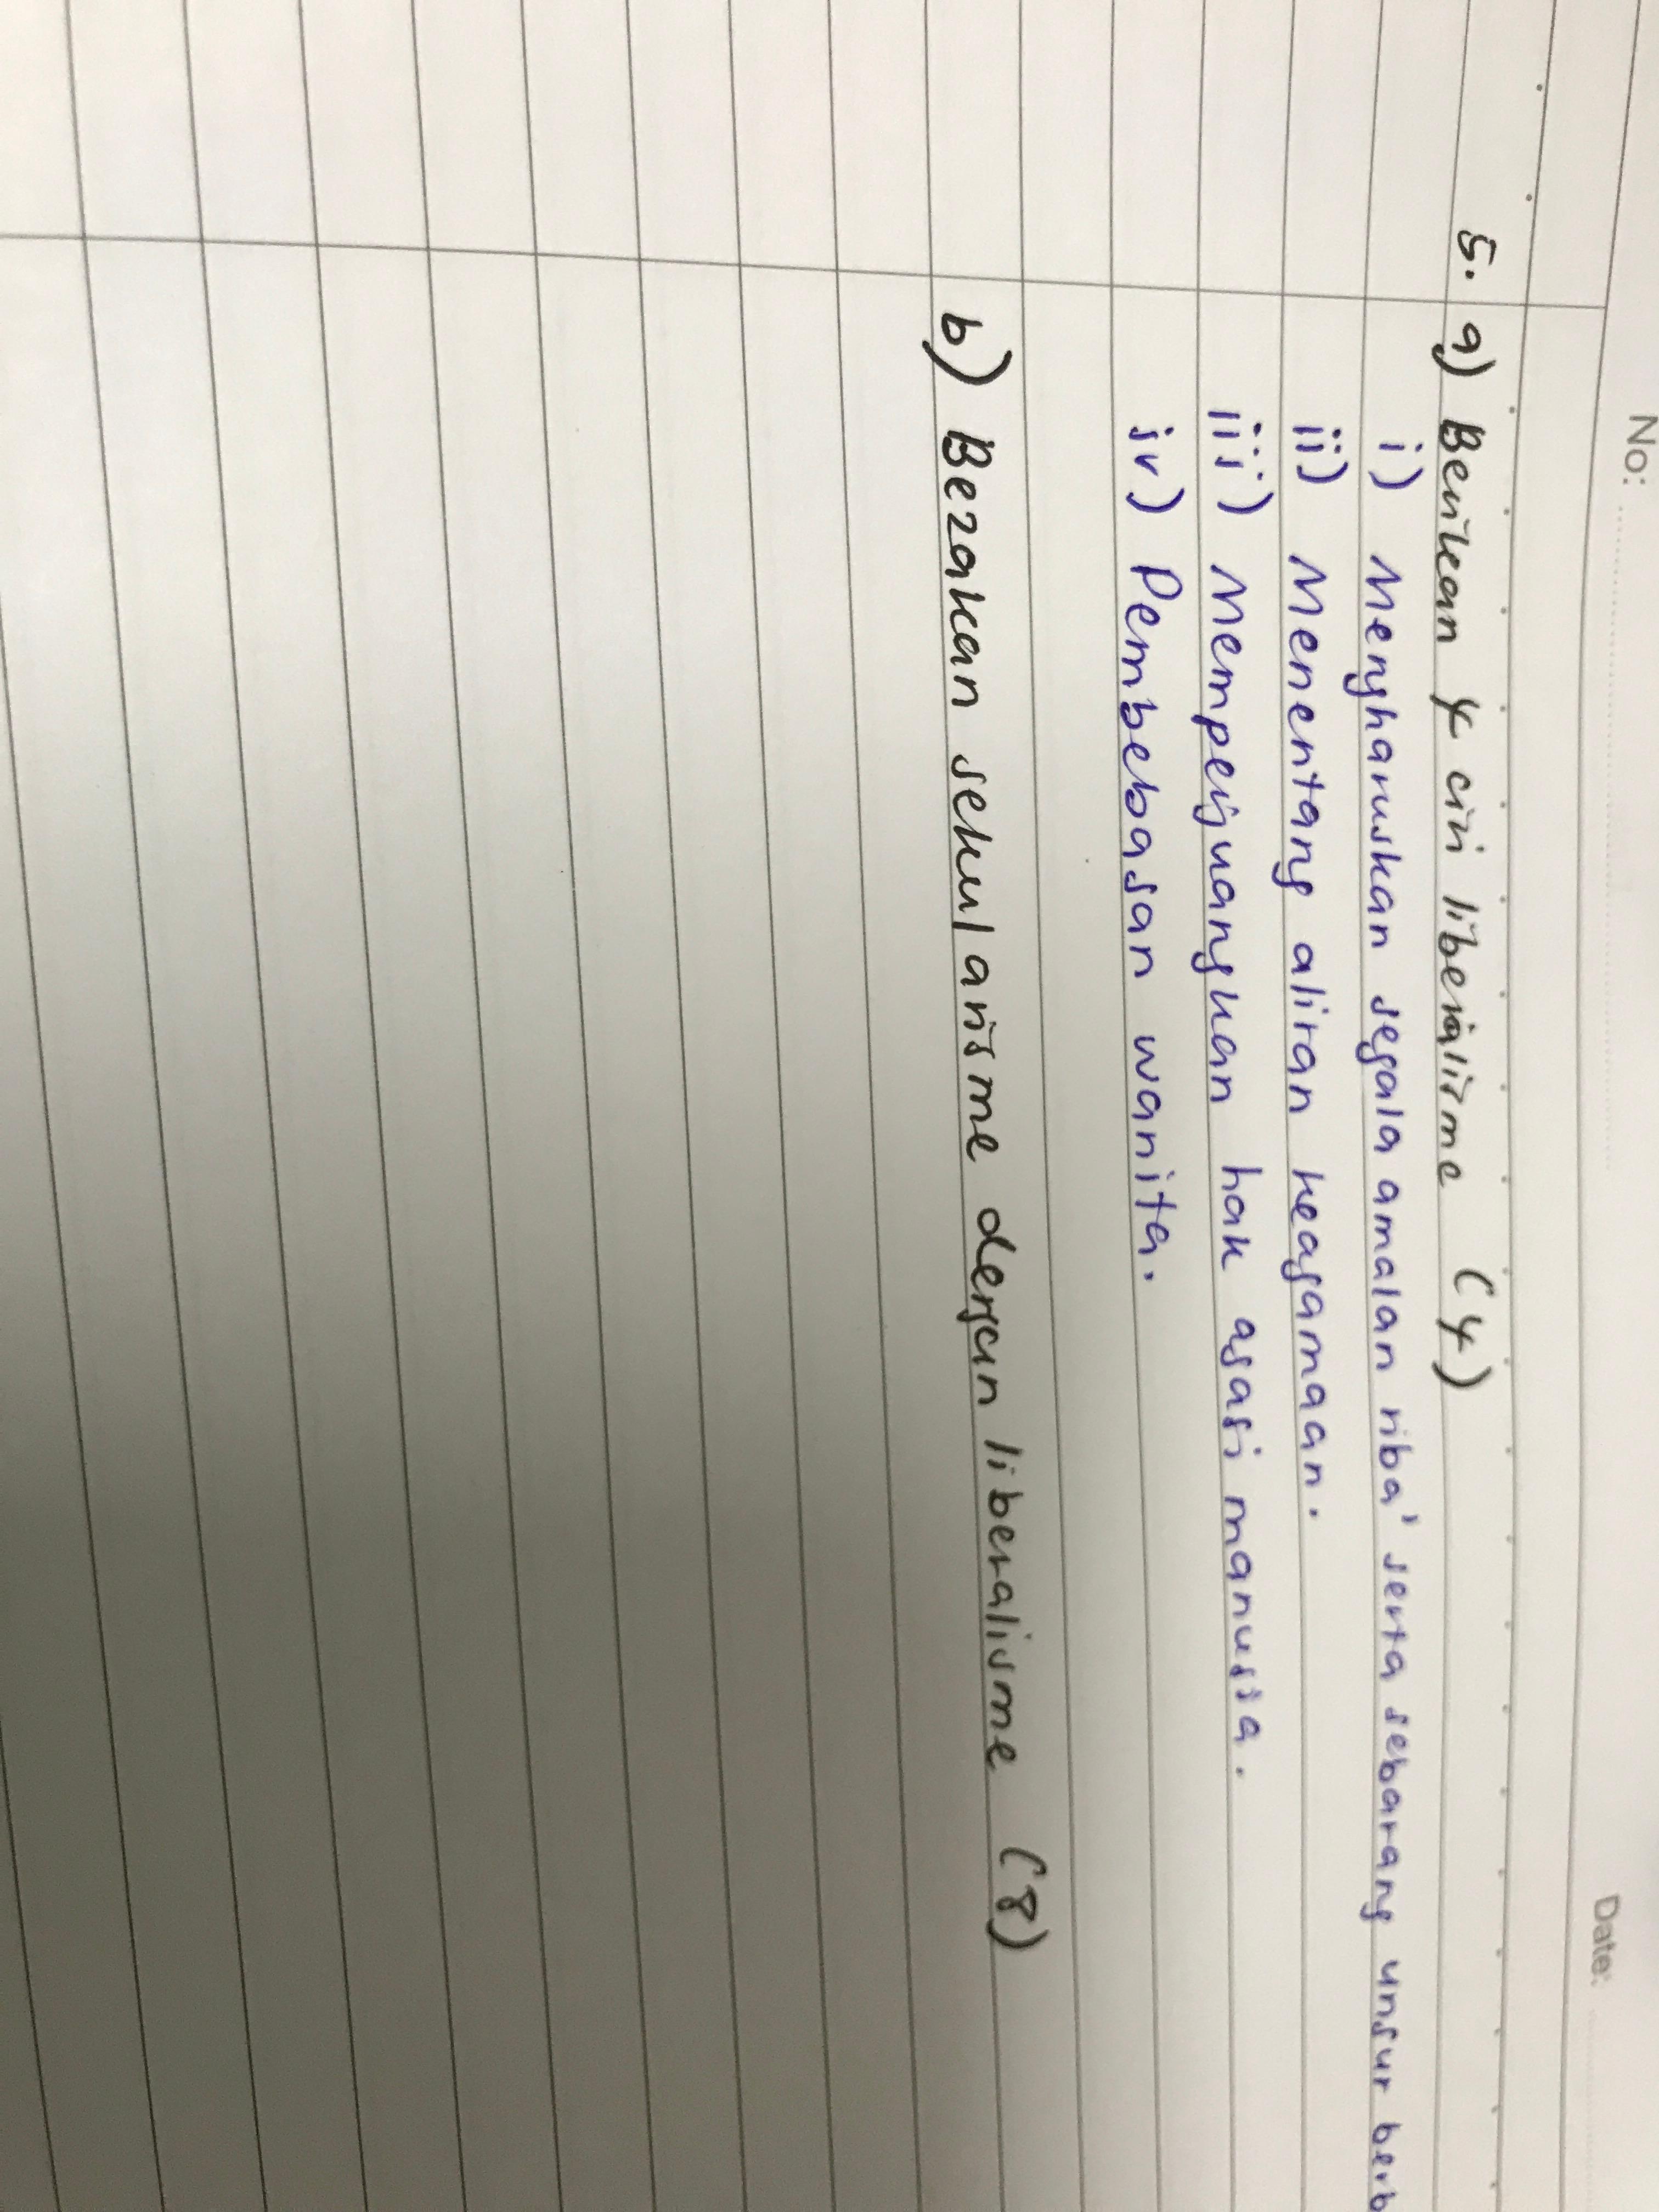 No:
Date:
5. a) Berikan 4 ciri liberalisme (4)
i) Mengharuskan segala amalan riba' serta sebarang unsur berb
ii) Menentang aliran keagamaan.
iii) Memperjuangkan hak asasi manusia.
iv) Pembebasan wanita.
b) Bezakan sekularisme dengan liberalisme (8)